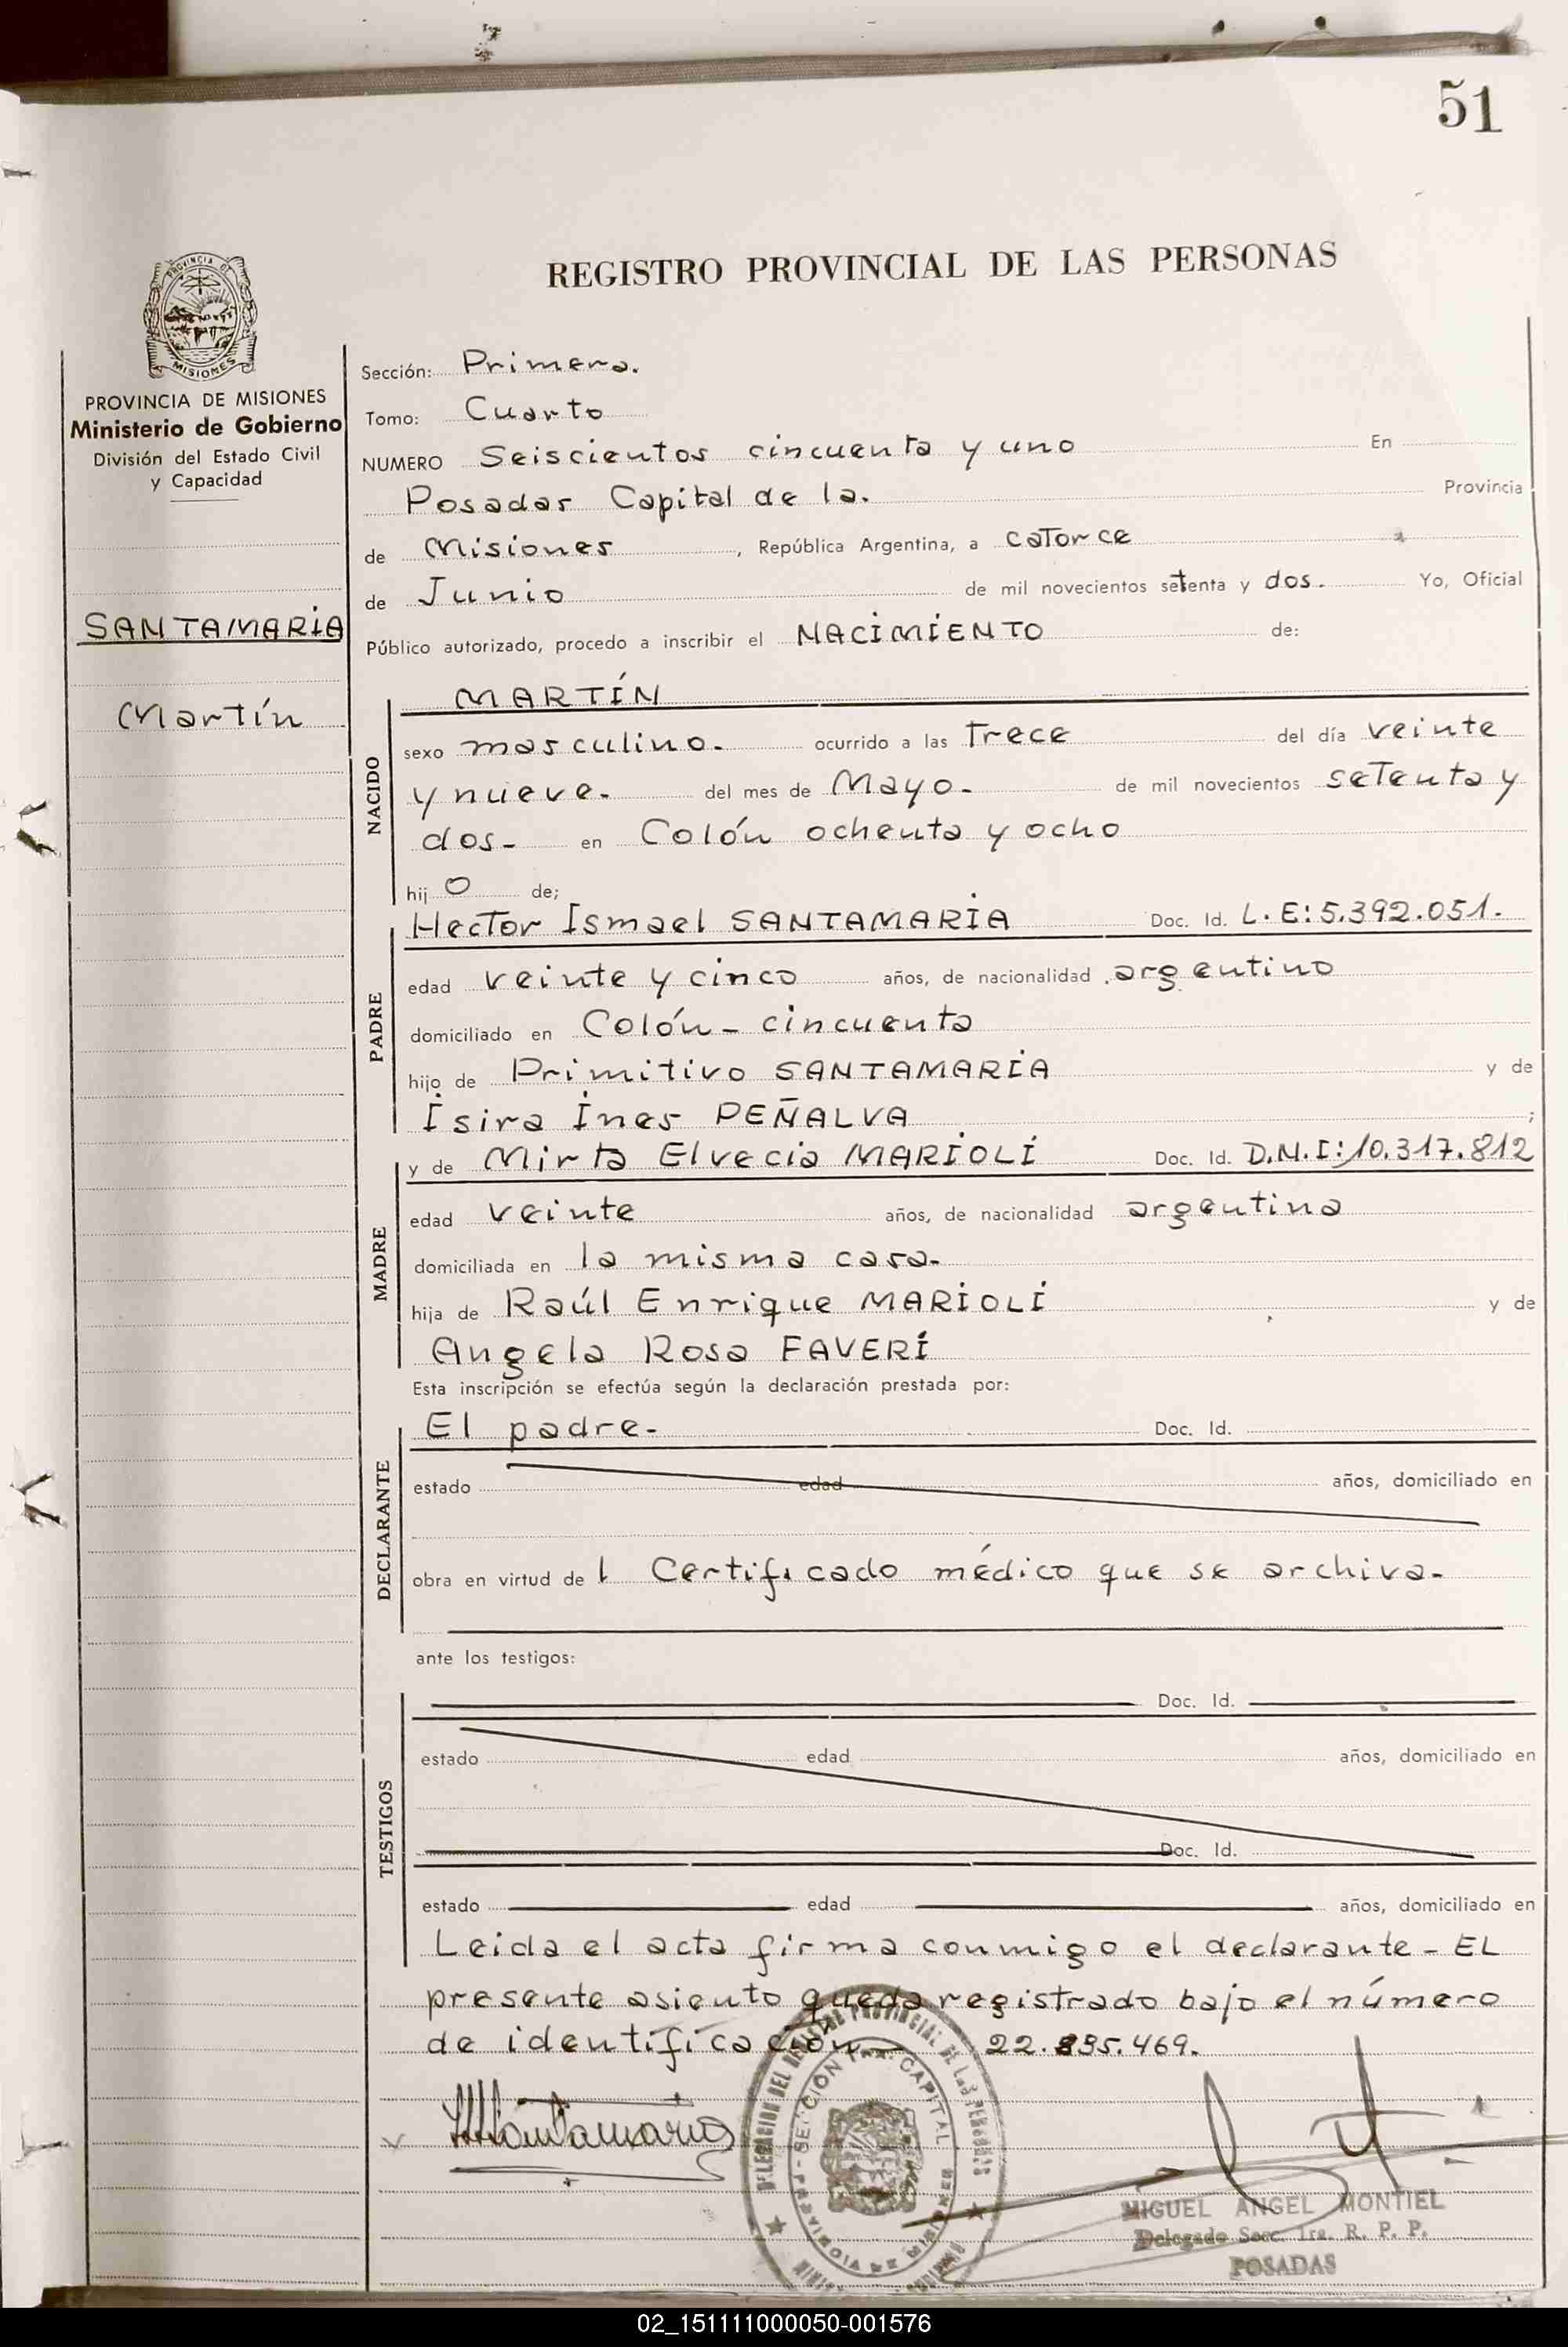 51
REGISTRO PROVINCIAL DE LAS PERSONAS
PROVINCIA DE MISIONES
Ministerio de Gobierno
División del Estado Civil
y Capacidad
SANTAMARIA
Martín
Sección: Primera.
Tomo: Cuarto
NUMERO Seiscientos cincuenta y uno En
Posadas Capital de la. Provincia
de Misiones, República Argentina, a catorce
de Junio de mil novecientos setenta y dos. Yo, Oficial
Público autorizado, procedo a inscribir el NACIMIENTO de:
NACIDO
MARTÍN
sexo masculino. ocurrido a las trece del día veinte
y nueve. del mes de Mayo. de mil novecientos setenta y
dos- en Colón ochenta y ocho
hijo de;
PADRE
Hector Ismael SANTAMARIA Doc. Id. L.E: 5.392.051.
edad veinte y cinco años, de nacionalidad argentino
domiciliado en Colón- cincuenta
hijo de Primitivo SANTAMARIA y de
Isira Ines PEÑALVA ;
MADRE
y de Mirta Elvecia MARIOLI Doc. Id. D.N.I: 10.317.812
edad veinte años, de nacionalidad argentina
domiciliada en la misma casa-
hija de Raúl Enrique MARIOLI y de
Angela Rosa FAVERI
Esta inscripción se efectúa según la declaración prestada por:
DECLARANTE
El padre- Doc. Id.
estado edad años, domiciliado en
obra en virtud del Certificado médico que se archiva-
ante los testigos:
TESTIGOS
Doc. Id.
estado edad años, domiciliado en
Doc. Id.
estado edad años, domiciliado en
Leida el acta firma conmigo el declarante- EL
presente asiento queda registrado bajo el número
de identificación- 22.835.469.
DELEGACION DEL REGISTRO PROVINCIAL DE LAS PERSONAS
SECCION 1RA. CAPITAL
PROVINCIA DE MISIONES
HSantamaria
MIGUEL ANGEL MONTIEL
Delegado Secc. 1ra. R. P. P.
POSADAS
02_151111000050-001576